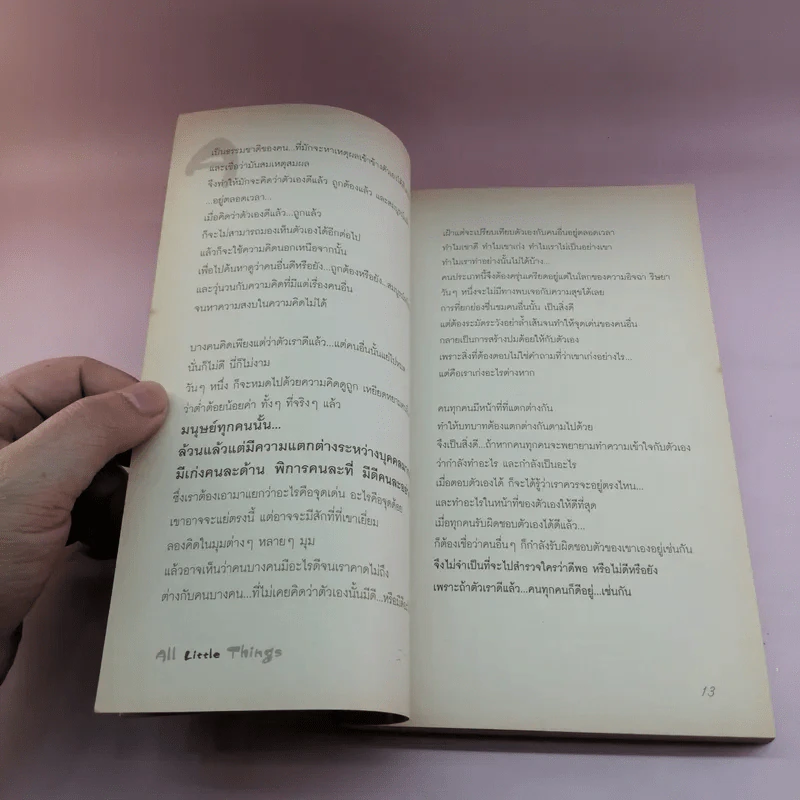 A
เป็นธรรมชาติของคน...ที่มักจะหาเหตุผลเข้าข้าง
และเชื่อว่ามันสมเหตุสมผล
จึงทำให้มักจะคิดว่าตัวเองดีแล้ว ถูกต้องแล้ว
...อยู่ตลอดเวลา...
เมื่อคิดว่าตัวเองดีแล้ว...ถูกแล้ว
ก็จะไม่สามารถมองเห็นตัวเองได้อีกต่อไป
แล้วก็จะใช้ความคิดนอกเหนือจากนั้น
เพื่อไปค้นหาดูว่าคนอื่นดีหรือยัง...ถูกต้องหรือยัง...
และวุ่นวนกับความคิดที่มีแต่เรื่องคนอื่น
จนหาความสงบในความคิดไม่ได้
บางคนคิดเพียงแต่ว่าตัวเราดีแล้ว...แต่คนอื่นนั้นแย่
นั่นก็ไม่ดี นี่ก็ไม่งาม
วันๆ หนึ่ง ก็จะหมดไปด้วยความคิดดูถูก เหยียดหยาม
ว่าต่ำต้อยน้อยค่า ทั้งๆ ที่จริงๆ แล้ว
มนุษย์ทุกคนนั้น...
ล้วนแล้วแต่มีความแตกต่างระหว่างบุคคล
มีเก่งคนละด้าน พิการคนละที่ มีดีคนละ
ซึ่งเราต้องเอามาแยกว่าอะไรคือจุดเด่น อะไรคือจุดด้อย
เขาอาจจะแย่ตรงนี้ แต่อาจจะมีสักที่ที่เขาเยี่ยม
ลองคิดในมุมต่างๆ หลายๆ มุม
แล้วอาจเห็นว่าคนบางคนมีอะไรดีจนเราคาดไม่ถึง
ต่างกับคนบางคน...ที่ไม่เคยคิดว่าตัวเองนั้นมีดี...หรือมีดี
All Little Things
เฝ้าแต่จะเปรียบเทียบตัวเองกับคนอื่นอยู่ตลอดเวลา
ทำไมเขาดี ทำไมเขาเก่ง ทำไมเราไม่เป็นอย่างเขา
ทำไมเราทำอย่างนั้นไม่ได้บ้าง...
คนประเภทนี้จึงต้องครุ่นเครียดอยู่แต่ในโลกของความอิจฉา ริษยา
วันๆ หนึ่งจะไม่มีทางพบเจอกับความสุขได้เลย
การที่ยกย่องชื่นชมคนอื่นนั้น เป็นสิ่งดี
แต่ต้องระมัดระวังอย่าล้ำเส้นจนทำให้จุดเด่นของคนอื่น
กลายเป็นการสร้างปมด้อยให้กับตัวเอง
เพราะสิ่งที่ต้องตอบไม่ใช่คำถามที่ว่าเขาเก่งอย่างไร...
แต่คือเราเก่งอะไรต่างหาก
คนทุกคนมีหน้าที่ที่แตกต่างกัน
ทำให้บทบาทต้องแตกต่างกันตามไปด้วย
จึงเป็นสิ่งดี...ถ้าหากคนทุกคนจะพยายามทำความเข้าใจกับตัวเอง
ว่ากำลังทำอะไร และกำลังเป็นอะไร
เมื่อตอบตัวเองได้ ก็จะได้รู้ว่าเราควรจะอยู่ตรงไหน...
และทำอะไรในหน้าที่ของตัวเองให้ดีที่สุด
เมื่อทุกคนรับผิดชอบตัวเองได้ดีแล้ว...
ก็ต้องเชื่อว่าคนอื่นๆ ก็กำลังรับผิดชอบตัวของเขาเองอยู่เช่นกัน
จึงไม่จำเป็นที่จะไปสำรวจใครว่าดีพอ หรือไม่ดีหรือยัง
เพราะถ้าตัวเราดีแล้ว...คนทุกคนก็ดีอยู่...เช่นกัน
13